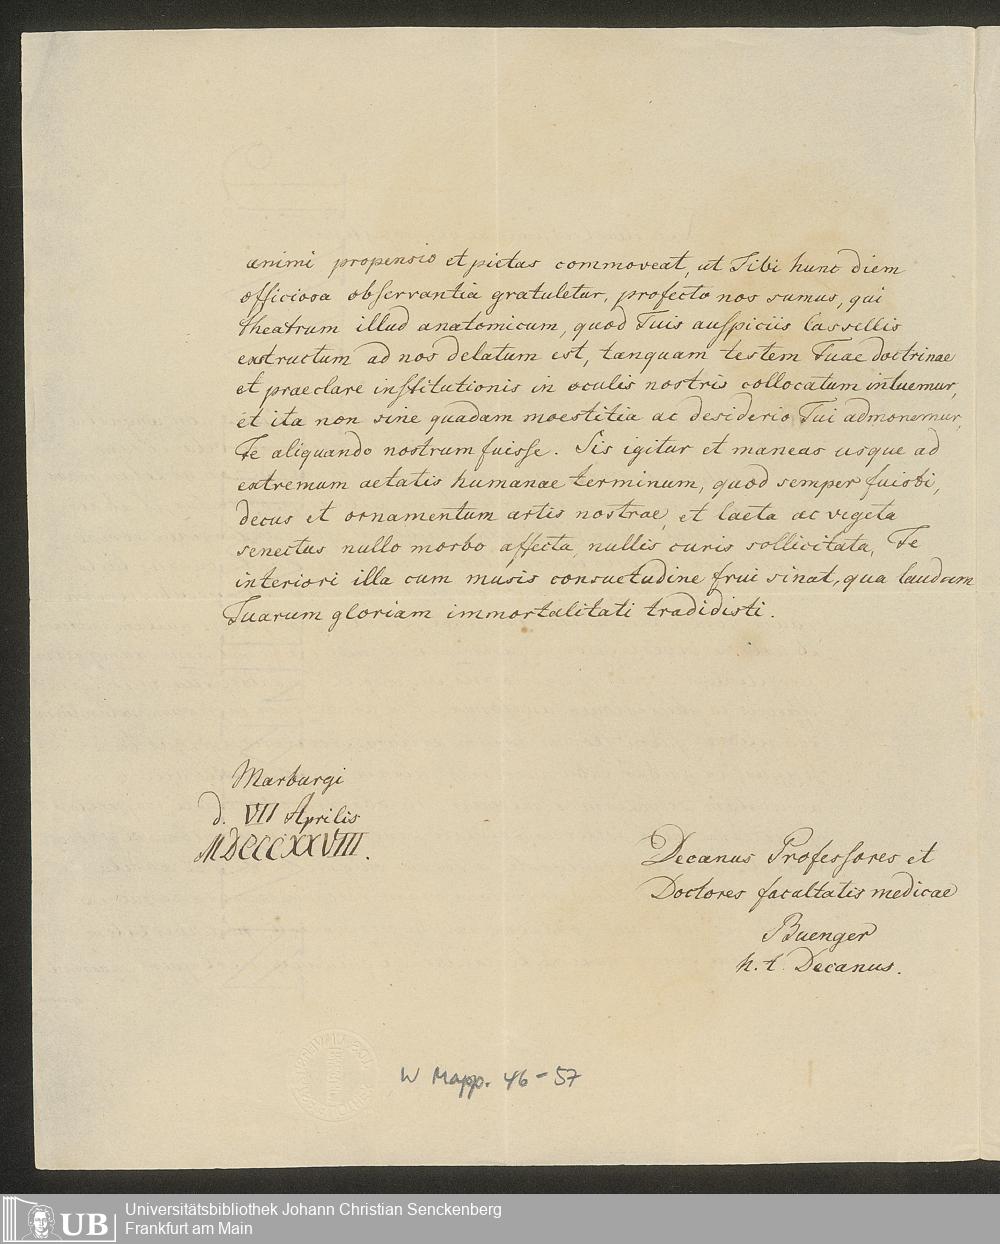 animi propensio et pietas commoveat, ut Tibi hunc diem
officiosa observantia gratuletur, profecto nos sumus, qui
theatrum illud anatomicum, quod Tuis auspiciis Cassellis
exstructum ad nos delatum est, tanquam testem Tuae doctrinae
et praeclare institutionis in oculis nostris collocatum intuemur,
et ita non sine quadam moestitia ac desiderio Tui admonemur,
Te aliquando nostrum fuisse. Sis igitur et maneas usque ad
extremum aetatis humanae terminum, quod semper fuisti,
decus et ornamentum artis nostrae, et laeta ac vegeta
senectus nullo morbo affecta, nullis curis sollicitata, Te
interiori illa cum musis consuetudine frui sinat, qua laudum
Tuarum gloriam immortalitati tradidisti.
Marburgi
d. VII Aprilis
MDCCCXXVIII.
Decanus Professores et
Doctores facultatis medicae
Buenger
h. t. Decanus.
W Mapp. 46-57
UB Universitätsbibliothek Johann Christian Senckenberg
Frankfurt am Main